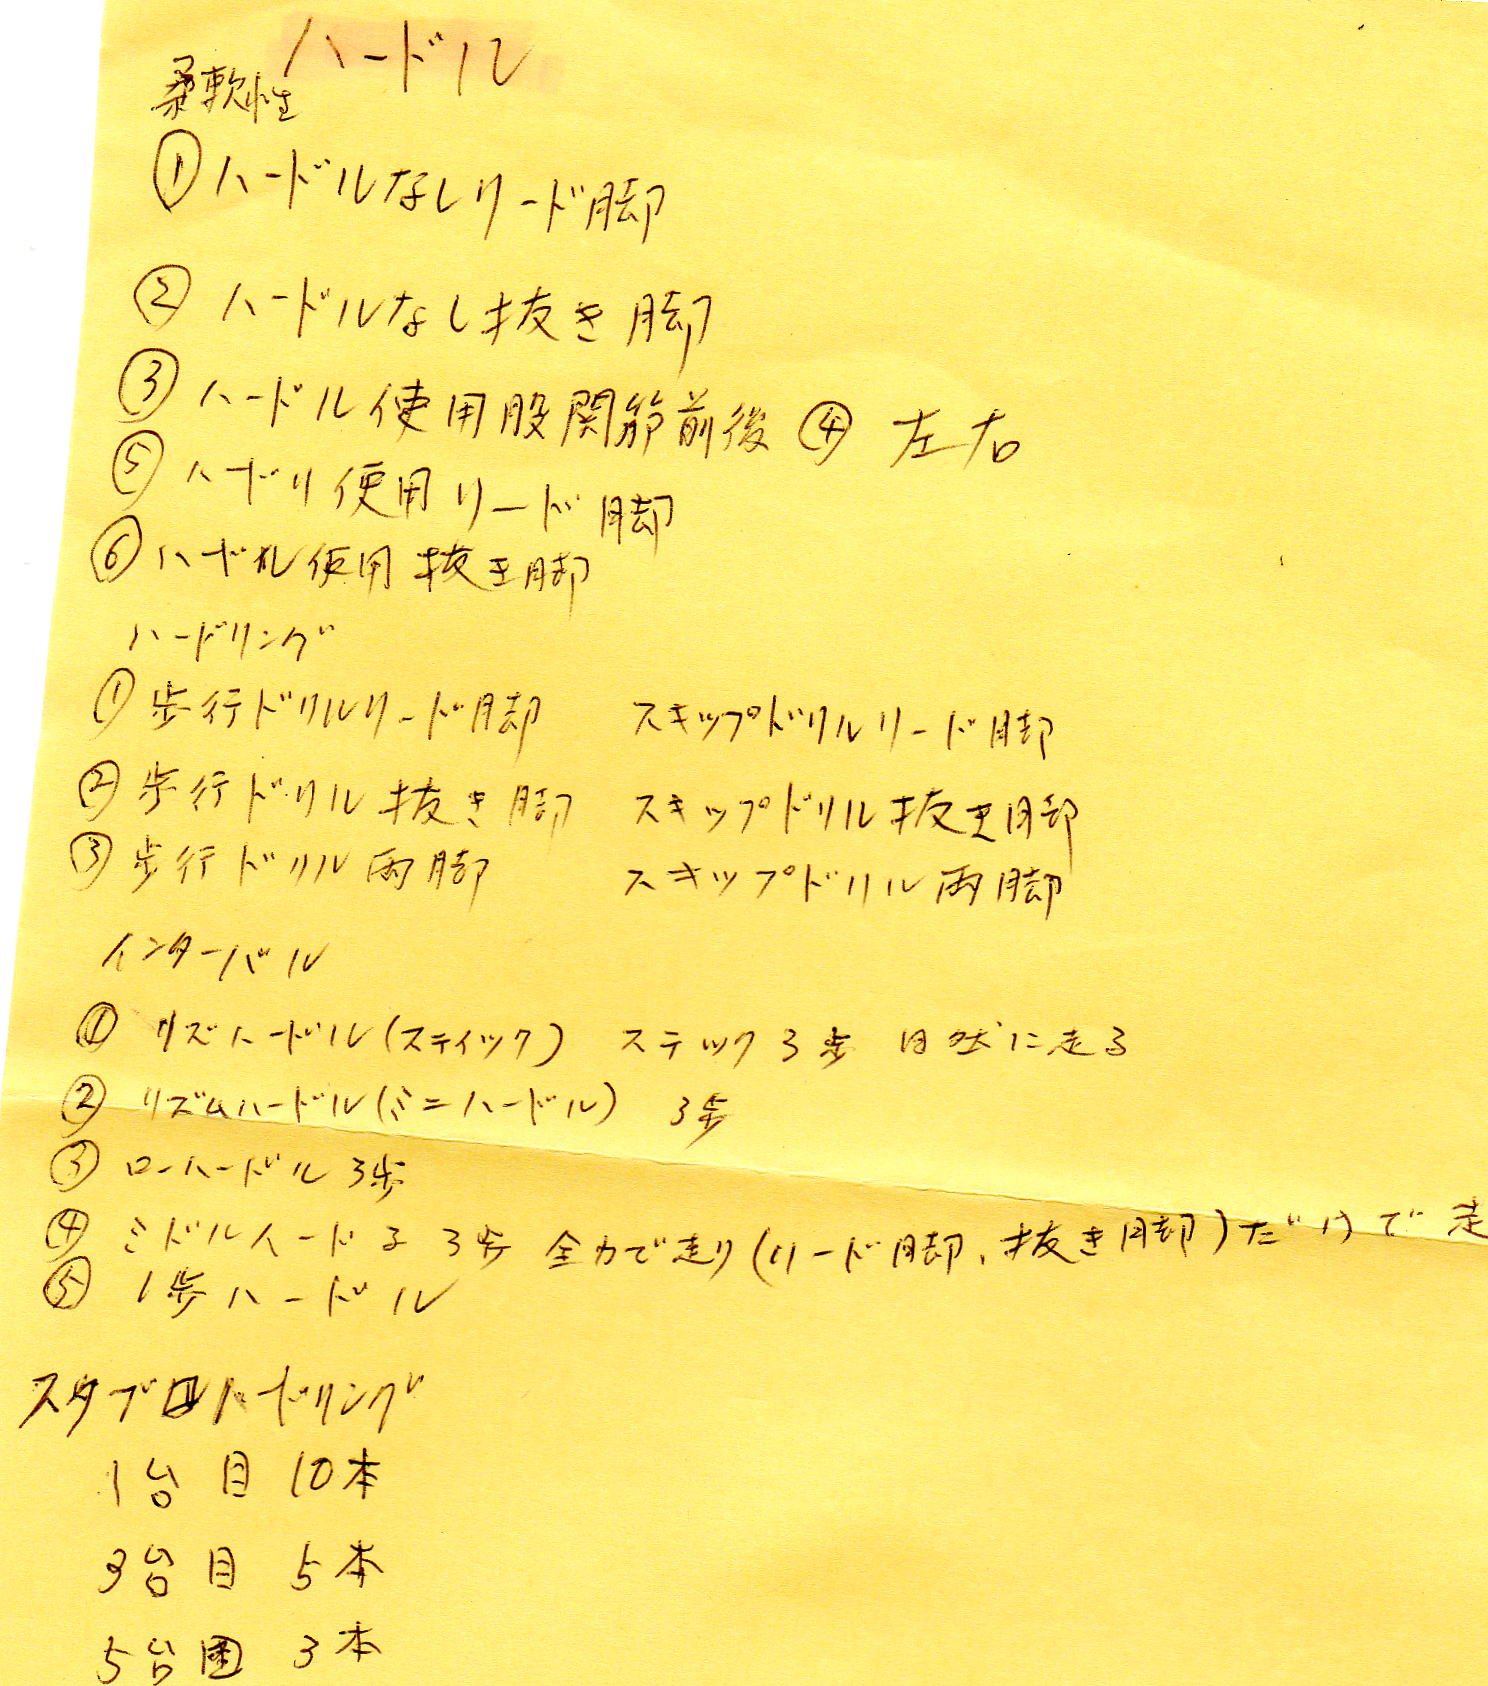 ハードル
柔軟性
① ハードルなしリード脚
② ハードルなし抜き脚
③ ハードル使用股関節前後 ④ 左右
⑤ ハードリ使用リード脚
⑥ ハードル使用抜き脚
ハードリング
① 歩行ドリルリード脚 スキップドリルリード脚
② 歩行ドリル抜き脚 スキップドリル抜き脚
③ 歩行ドリル両脚 スキップドリル両脚
インターバル
① リズハードル(スティック) ステック3歩 自然に走る
② リズムハードル(ミニハードル) 3歩
③ ローハードル3歩
④ ミドルハード 3歩 全力で走り(リード脚、抜き脚)だけで走
⑤ 1歩ハードル
スタブロハードリング
1台目 10本
3台目 5本
5台目 3本